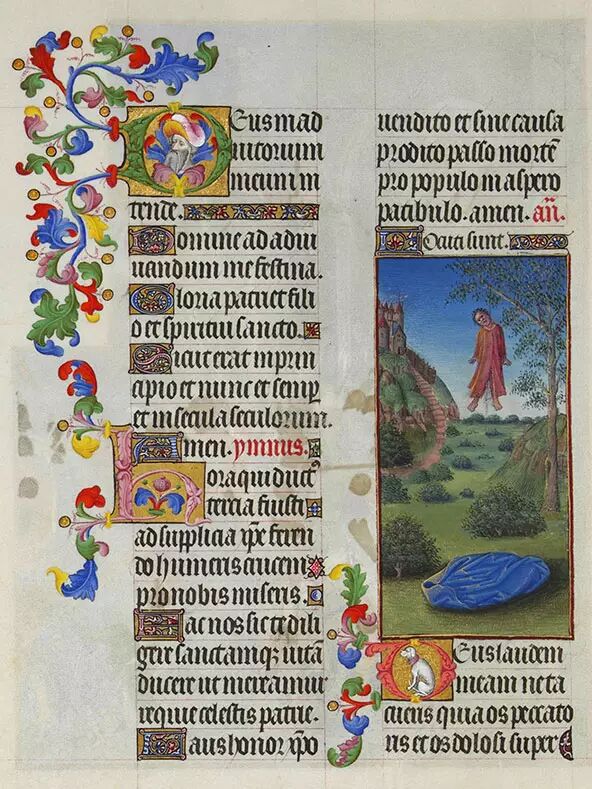 Deus in ad
iutorium
meum in
tende.
Domine ad adiu
uandum me festina.
Gloria patri et fili
o et spiritui sancto.
Sicut erat in prin
cipio et nunc et semp
et in secula seculorum.
Amen. ymnus.
Hora qui ductꝰ
tercia fuisti
ad supplicia xpe feren
do humeris crucem
pro nobis miseris.
Fac nos sic te dili
gere sanctamqꝫ uitā
ducere ut mereamur
requie celestis patrie.
Laus honor xpo
uendito et sine causa
prodito passo mortē
pro populo in aspero
patibulo. amen. añ.
Locuti sunt.
Deus laudem
meam ne ta
cueris quia os peccato
ris et os dolosi super